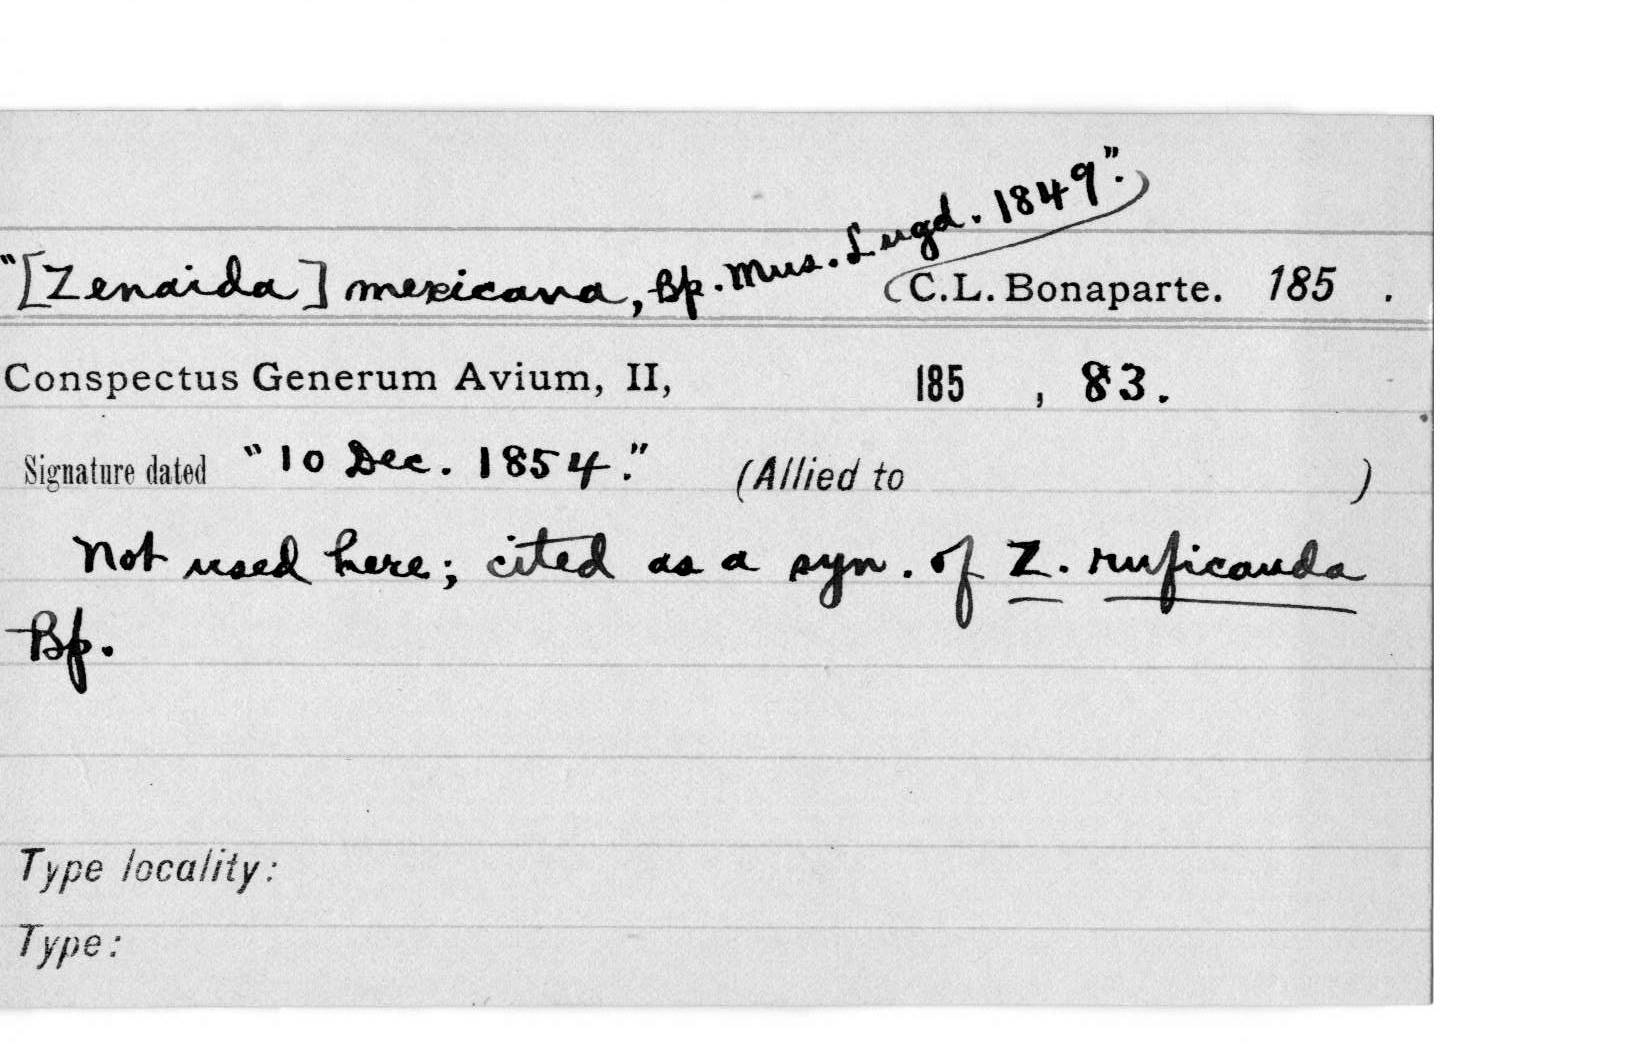 "[Zenaida] mexicana, Bp. Mus. Lugd. 1849". (C.L. Bonaparte. 185 .
Conspectus Generum Avium, II, 185 , 83.
Signature dated "10 Dec. 1854." (Allied to )
Not used here; cited as a syn. of Z. ruficauda
Bp.
Type locality:
Type: